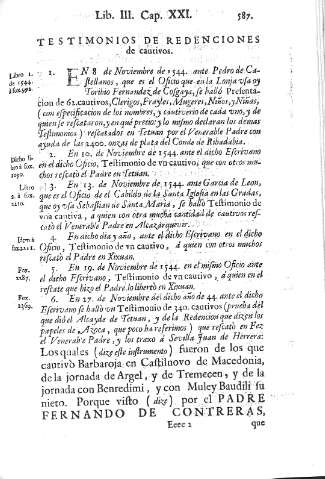 Lib. III. Cap. XXI. 587.
TESTIMONIOS DE REDENCIONES
de cautivos.
Libro 1.
de 1544.
1. EN 8 de Noviembre de 1544. ante Pedro de Ca-
stellanos, que es el Oficio que en la Lonja usa oy
Toribio Fernandez de Cosgaya, se halló Presenta-
cion de 62. cautivos, Clerigos, Frayles, Mugeres, Niños, y Niñas,
(con especificacion de los nombres, y cautiverio de cada uno, y de
quien se rescataron, y en què precio y lo mismo declaran los demas
Testimonios) rescatados en Tetuan por el Venerable Padre con
ayuda de las 2400. onzas de Plata del Conde de Ribadabia.
Dicho li-
bro à fox.
2. En 10. de Noviembre de 1544. ante el dicho Escrivano
en el dicho Oficio, Testimonio de un cautivo, que con otros mu-
chos rescató el Padre en Tetuan.
Libro
3. En 13. de Noviembre de 1544. ante Garcia de Leon,
que es el Oficio de el Cabildo de la Santa Iglesia en las Gradas,
que oy usa Sebastian de Santa Maria, se halló Testimonio de
una cautiva, a quien con otra mucha cantidad de cautivos res-
cató el Venerable Padre en Alcazarquever.
4. En dicho dia y año, ante el dicho Escrivano en el dicho
Oficio, Testimonio de un cautivo, à quien con otros muchos
rescató el Padre en Xixuan.
Fox.
5. En 19. de Noviembre de 1544. en el mismo Oficio ante
el dicho Escrivano, Testimonio de un cautivo, à quien en el
rescate que hizo el Padre, lo libertò en Xixuan.
Fox.
6. En 27. de Noviembre del dicho año de 44. ante el dicho
Escrivano se halló un Testimonio de 340. cautivos (prueba del
que dió el Alcayde de Tetuan, y de la Redencion que dizen los
papeles de Azeca, que poco ha referimos) que rescató en Fez
el Venerable Padre, y los traxo à Sevilla Juan de Herrera:
Los quales (dize este instrumento) fueron de los que
cautivò Barbaroja en Castilnovo de Macedonia,
de la jornada de Argel, y de Tremecen, y de la
jornada con Benredimi, y con Muley Baudili su
nieto. Porque visto (dize) por el PADRE
FERNANDO DE CONTRERAS,
Eeee 2 que